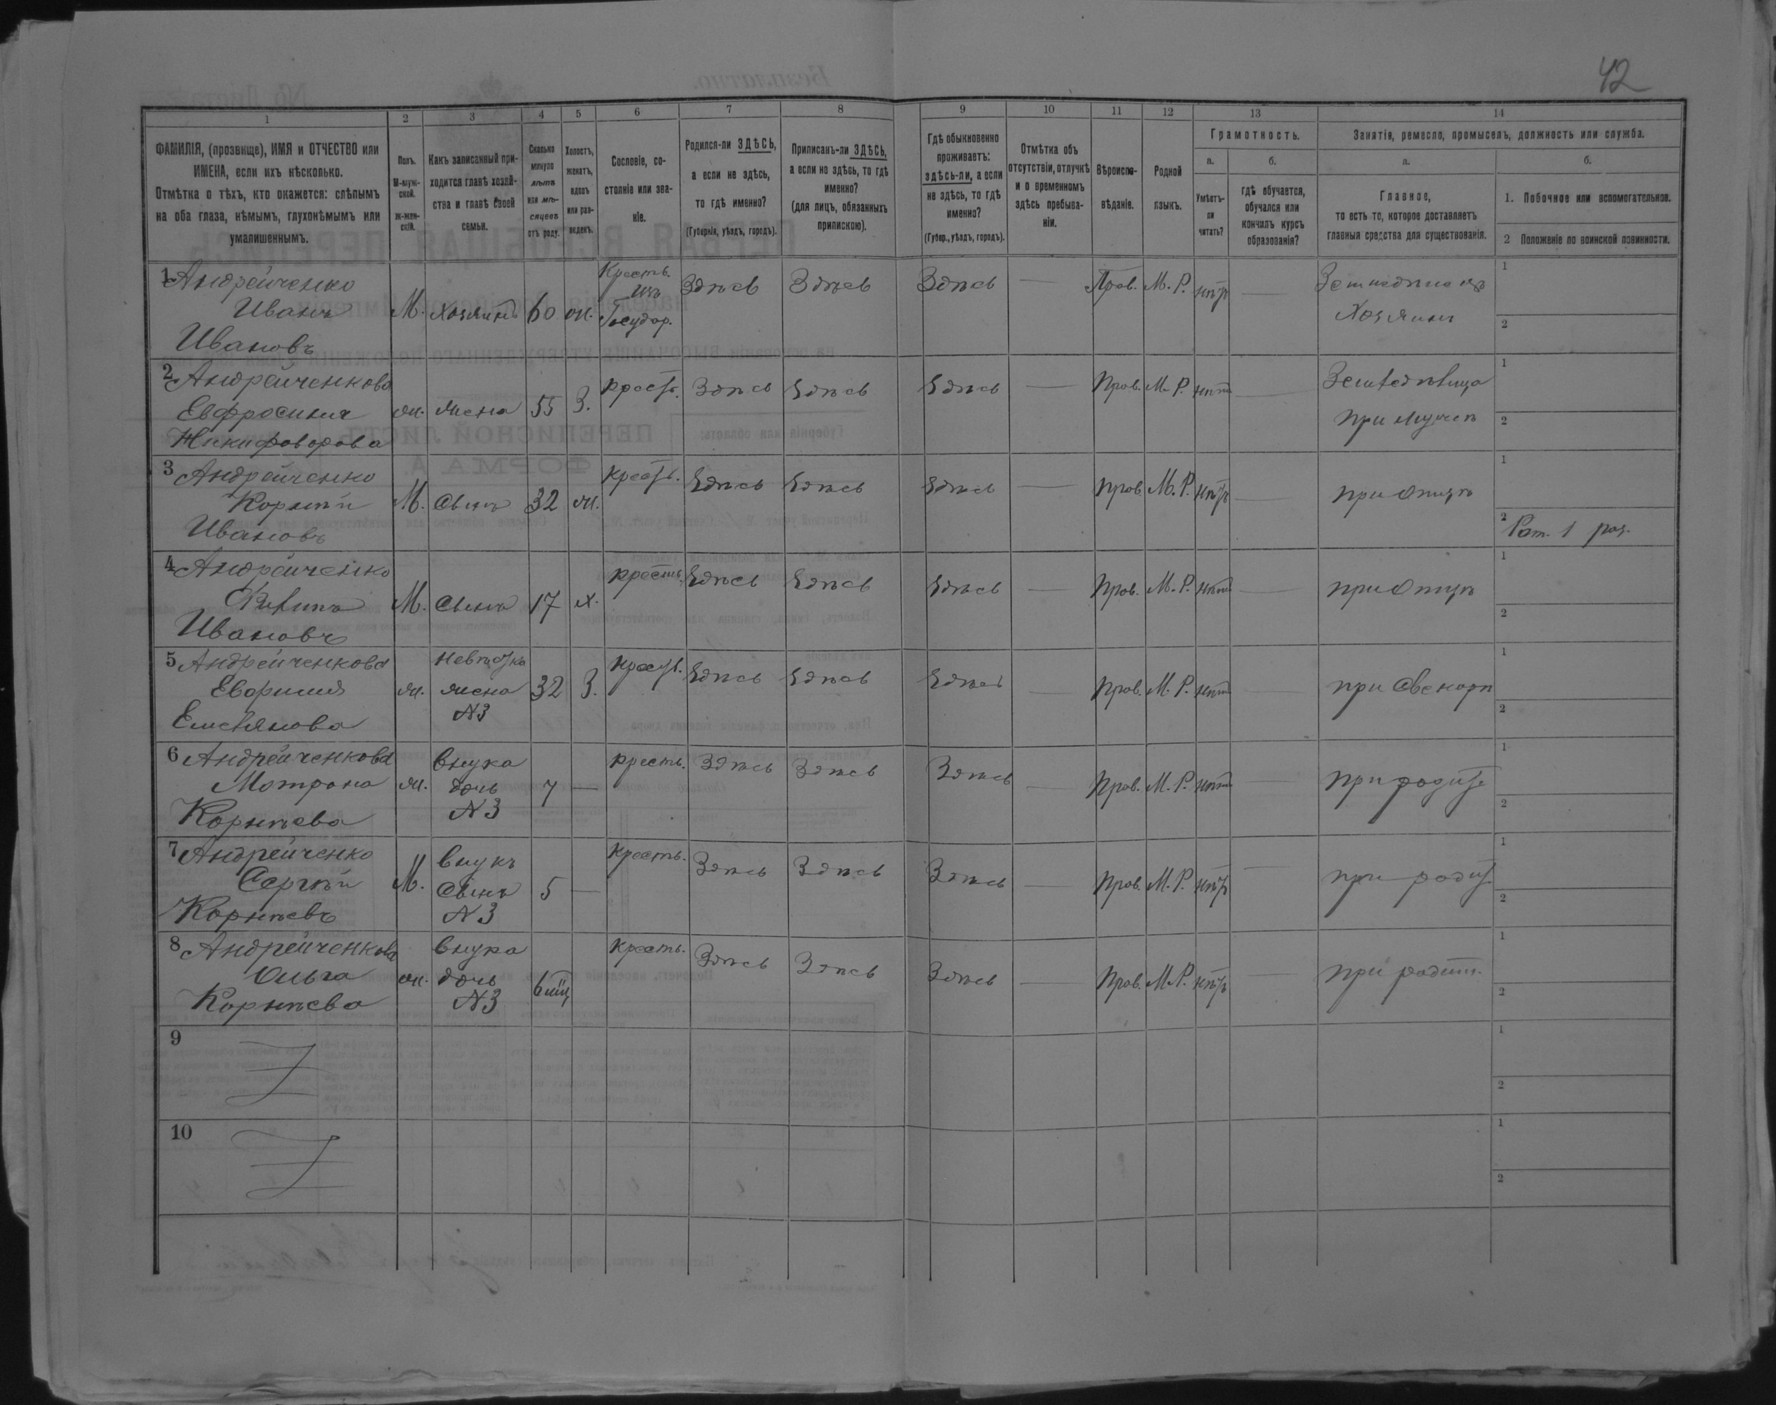 42
1 2 3 4 5 6 7 8 9 10 11 12 13 14
ФАМИЛІЯ, (прозвище), ИМЯ и ОТЧЕСТВО или
ИМЕНА, если ихъ нѣсколько.
Отмѣтка о тѣхъ, кто окажется: слѣпымъ
на оба глаза, нѣмымъ, глухонѣмымъ или
умалишеннымъ.
Полъ.
М-мужской.
Ж-женскій.
Какъ записанный при-
ходится главѣ хозяй-
ства и главѣ своей
семьи.
Сколько
минуло
лѣтъ
или мѣ-
сяцевъ
отъ роду.
Холостъ,
женатъ,
вдовъ
или раз-
веденъ.
Сословіе, со-
стояніе или зва-
ніе.
Родился-ли ЗДѢСЬ,
а если не здѣсь,
то гдѣ именно?
(Губернія, уѣздъ, городъ).
Приписанъ-ли ЗДѢСЬ,
а если не здѣсь, то гдѣ
именно?
(для лицъ, обязанныхъ
припискою).
Гдѣ обыкновенно
проживаетъ:
здѣсь-ли, а если
не здѣсь, то гдѣ
именно?
(Губер., уѣздъ, городъ).
Отмѣтка объ
отсутствіи, отлучкѣ
и о временномъ
здѣсь пребыва-
ніи.
Вѣроиспо-
вѣданіе.
Родной
языкъ.
Грамотность.
а.
Умѣетъ-
ли
читать?
б.
гдѣ обучается,
обучался или
кончилъ курсъ
образованія?
Занятія, ремесло, промыселъ, должность или служба.
а.
Главное,
то есть то, которое доставляетъ
главныя средства для существованія.
б.
1. Побочное или вспомогательное.
2 Положеніе по воинской повинности.
1 Андрейченко
Иванъ
Ивановъ
М. Хозяинъ 60 ж.
Кресть.
изъ
Государ.
Здѣсь Здѣсь Здѣсь — Прав. М. Р. нѣтъ —
Хозяинъ
1
2
2 Андрейченкова
Евфросинія
Никифорова
ж. жена 55 З. крест. Здѣсь Здѣсь Здѣсь — Прав. М. Р. нѣтъ —
при мужѣ
1
2
3 Андрейченко
Корнѣй
Ивановъ
М. Сынъ 32 ж. крест. Здѣсь Здѣсь Здѣсь — Прав. М. Р. нѣтъ —
при отцѣ
1
2 Рат. 1 раз.
4 Андрейченко
Ивановъ
М. Сынъ 17 х. кресть. Здѣсь Здѣсь Здѣсь — Прав. М. Р. нѣтъ —
при отцѣ
1
2
5 Андрейченкова
Емельянова
ж.
невѣстка
жена
N3
32 З. крест. Здѣсь Здѣсь Здѣсь — Прав. М. Р. нѣтъ —
при свекорѣ
1
2
6 Андрейченкова
Мотрона
Корнѣева
ж.
внука
дочь
N3
7 — кресть. Здѣсь Здѣсь Здѣсь — Прав. М. Р. нѣтъ —
при родит.
1
2
7 Андрейченко
Сергѣй
Корнѣевъ
М.
внукъ
Сынъ
N3
5 — Кресть. Здѣсь Здѣсь Здѣсь — Прав. М. Р. нѣтъ —
при родит.
1
2
8 Андрейченкова
Ольга
Корнѣева
ж.
внука
дочь
N3
6 мц кресть. Здѣсь Здѣсь Здѣсь — Прав. М. Р. нѣтъ
при родит.
1
2
9
1
2
10
1
2